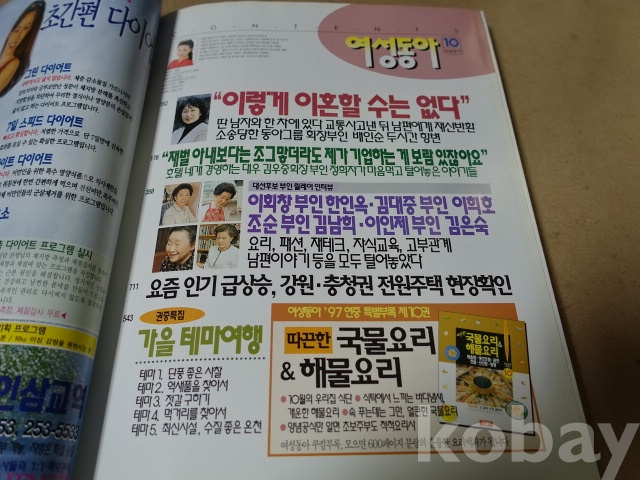 초간편 다이
CONTENTS
여성동아 10
352
"이렇게 이혼할 수는 없다"
딴 남자와 한 차에 있다 교통사고낸 뒤 남편에게 재산반환
소송당한 동아그룹 회장부인 배인순 두시간 항변
178
"재벌 아내보다는 조그맣더라도 제가 기업하는 게 보람 있잖아요"
호텔 네개 경영하는 대우 김우중회장 부인 정희자가 마음먹고 털어놓은 이야기들
358
대선후보 부인 릴레이 인터뷰
이회창 부인 한인옥·김대중 부인 이희호
조순 부인 김남희·이인제 부인 김은숙
요리, 패션, 재테크, 자식교육, 고부관계
남편이야기 등을 모두 털어놓았다
711
요즘 인기 급상승, 강원·충청권 전원주택 현장확인
543
권중특집
가을 테마여행
테마 1. 단풍 좋은 사찰
테마 2. 억새풀을 찾아서
테마 3. 젓갈 구하기
테마 4. 먹거리를 찾아서
테마 5. 최신시설, 수질 좋은 온천
여성동아 '97 연중 특별부록 제10권
따끈한 국물요리
& 해물요리
국물요리 & 해물요리
• 10월의 우리집 식단 • 식탁에서 느끼는 바다냄새,
개운한 해물요리 • 속 푸는데는 그만, 얼큰한 국물요리
• 양념공식만 알면 초보주부도 척척요리사
여성동아 쿠킹부록, 모으면 600페이지 분량의 요리백과가 됩니다
그린 다이어트
7일 스피드 다이어트
다이어트 다이어트
다이어트 프로그램 실시
인삼교역
253-5533
kobay